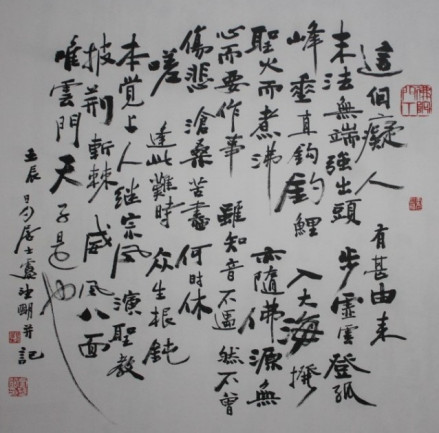 這個癡人 有甚由来
末法無端强出頭 步虚雲登孤
峰垂直钩釣鯉 入大海撥
聖火而煮沸 亦隨佛源無
心而要作事 雖知音不遇然不曾
傷悲滄桑苦盡 何時休
嗟 逢此難時 众生根鈍
本覚上人继宗風 演聖教
披荆斬棘 威風八面
唯雲門天子是也
壬辰 居士 明并記